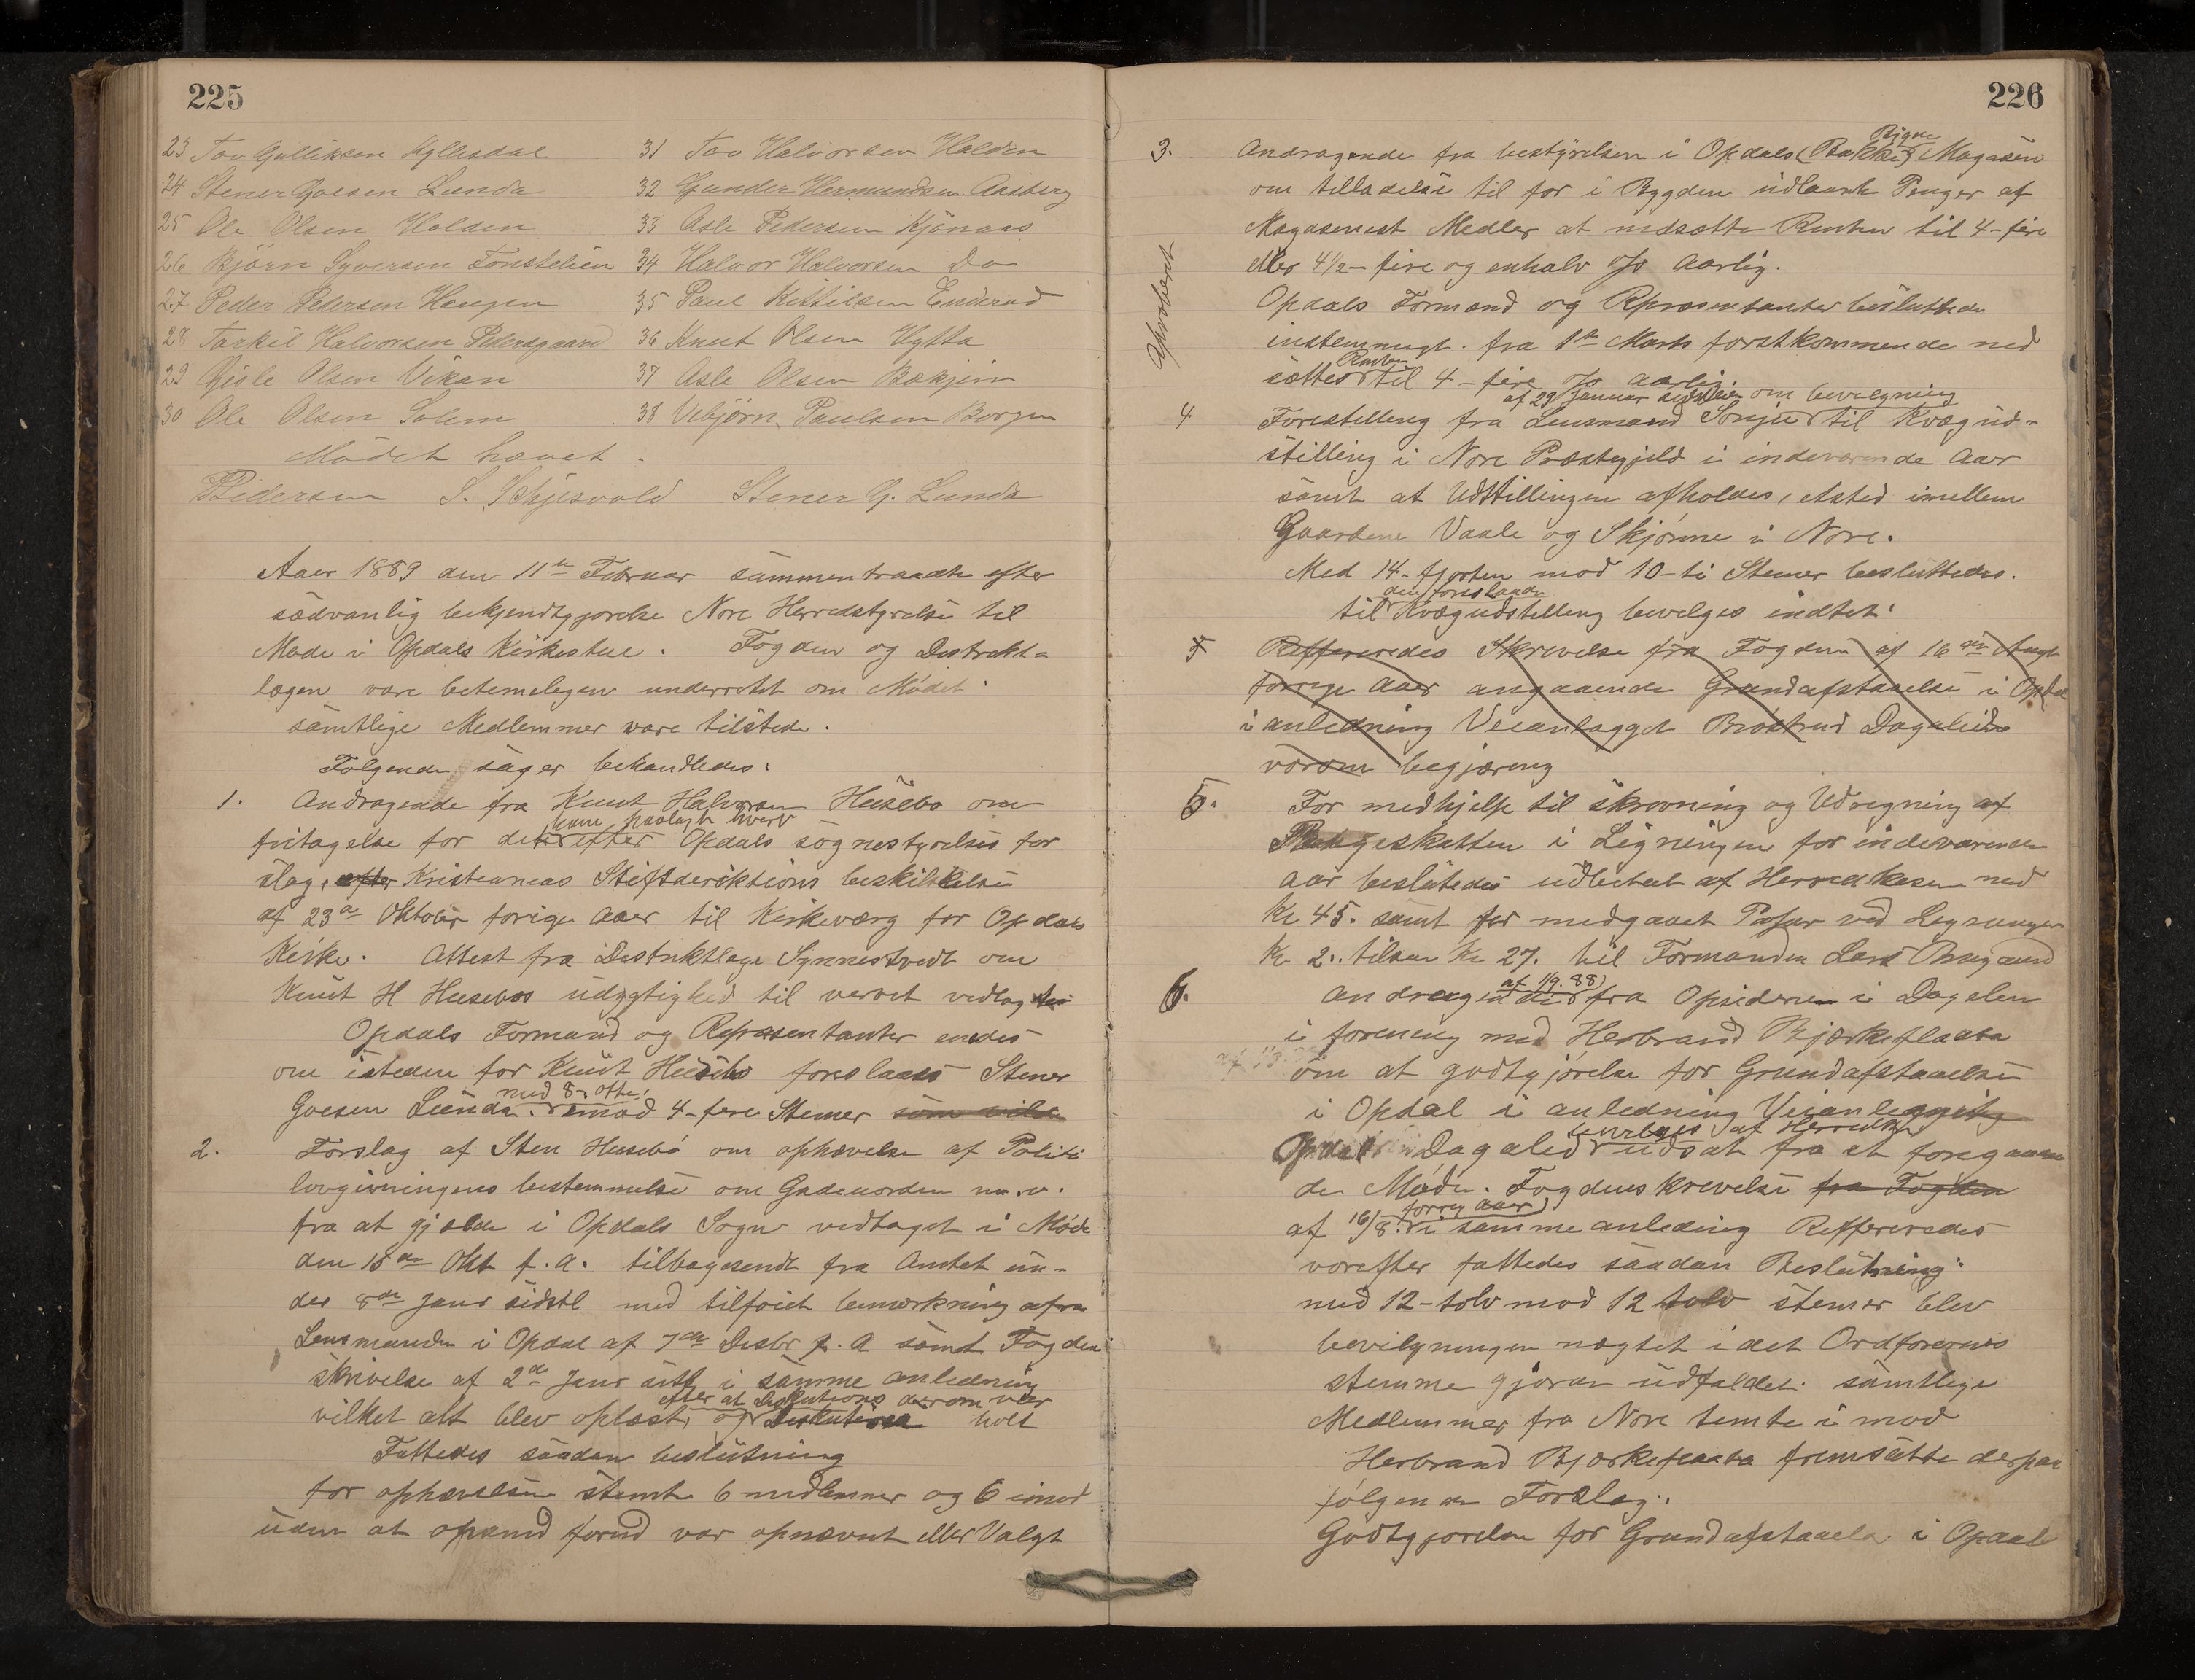 225
23 Tov Gulliksen Kyllesdal
24 Stener Goesen Lunda
25 Ole Olsen Holden
26 Bjørn Syversen Fonstelien
27 Peder Pedersen Haugen
28 Torkil Halvorsen Pedersgaard
29 Gisle Olsen Vikan
30 Ole Olsen Solem
31 Tov Halvorsen Holden
32 Gunder Hermundsen Aasberg
33 Asle Pedersen Kjønaas
34 Halvor Halvorsen Do
35 Paul Kittilsen Enderud
36 Knut Olsen Hytta
37 Asle Olsen Bækjorn
38 Vebjørn Paulsen Borgen
Mødet hævet.
Pedersen S. Skjesvold Stener G. Lunda
Aaer 1889 den 11te Februar sammentraadte efter
sødvanlig bekjendtgjørelse Nore Herredstyrelse til
Møde i Opdals Kirkestue. Fogden og Destrekt=
lægen vare betemelegen underrettet om Mødet.
samtlige Medlemmer vare tilstede.
Følgende sager behandledes:
1. Andragende fra Knut Halvorsen Husebø om
fritagelse for det ham paalagte hverv efter Opdals sognestyrelses for
slag, efter Kristianias Stiftderektions beskikkelse
af 23de Oktober forige Aaer til Kirkeværg for Opdals
Kirke. Attest fra Destriktlæge Synnestvedt om
Knut H Husebøs udygtighed til vervet vedlag
Opdals Formænd og Repræsentanter enedes
om isteden for Knut Husebø foreslaaes Stener
Goesen Lunda. med 8 otte mod 4-fire Stemer som vilde
2. Forslag af Sten Husebø om ophævelse af Politi
lovgivningens bestemmelse om Gadeuorden m.v.
fra at gjælde i Opdals Sogn vedtaget i Møde
den 15de Okt f. A. tilbagesendt fra Amtet un-
der 8de Janr sidstl med tilføiet bemærkning afra
Lensmanden i Opdal af 7de Desbr f. A samt Fogdens
skrivelse af 2de Janr sistl i samme anledning
vilket alt blev oplæst, og efter at Diskutions derom var Diskuteres holt
Fattedes saadan beslutning
for ophævelsen stemte 6 medlemmer og 6 imod
uden at opmand forud var opnævnt eller Valgt
226
Aproberet
3. Andragende fra bestyrelsen i Opdals (Bakke) Bygde Magasin
om tilladelse til for i Bygden udlaante Penger af
Magasenest Medler at nedsætte Renten til 4-fire
eller 4 1/2 - fire og enhalv % Aarlig.
Opdals Formænd og Repræsentanter besluttede
instemmigt. fra 1ste Marts førstkommende ned
sættes Renten til 4-fire % aarlig.
4 Forestilleng fra Lensmand Sonju af 29 Januar sidstleden om bevelgning til Kvægud-
stilling i Nore Præstegjeld i indeværende Aar
samt at Udstillingen afholdes, etsted imellem
Gaardene Vaale og Skjønne i Nore.
Med 14-fjorten mod 10-ti Stemer besluttedes.
til den foreslaaede Kvægudstelleng bevelges indtet.
5 Reffereredes Skrevelse fra Fogden af 16de Augst
forrige Aaer angaaende Grundafstaaelse i Opdal
i anledning Veianlægget Brøstrud Dagalid
vorom begjæreng
5. For medhjelp til skrevning og Udregning af
skatten i Ligningen for indeværende
aar beslutedes udbetalt af Herredkasen med
Kr 45. samt for medgaaet Papir ved Legnengen
Kr 2. tilsam Kr 27. til Formanden Lars
6. Andragende af 1/9. 88 fra Opsiderne i Dagalen
i foreneng med Herbrand Bjørkeflaata
om at godtgjørelse for Grundafstaaelse
i Opdal i anledning Veianlegget
Opdal Dagalid bevelges af Herredk udsat fra et foregaaen
de Møde. Fogdens krevelse fra Fogden
af 16/8. forrig aar i samme anledning Reffereredes
vorefter fattedes saadan Beslutning:
med 12-tolv mod 12 tolv stemer blev
bevilgningen nægtet idet Ordførernes
stemme gjørar udfaldet. samtlige
Medlemmer fra Nore temte i mod
Herbrand Bjørkeflaata fremsatte derpaa
følgende Forslag:
Godtgjørelse for Grundafstaaelse i Opdal